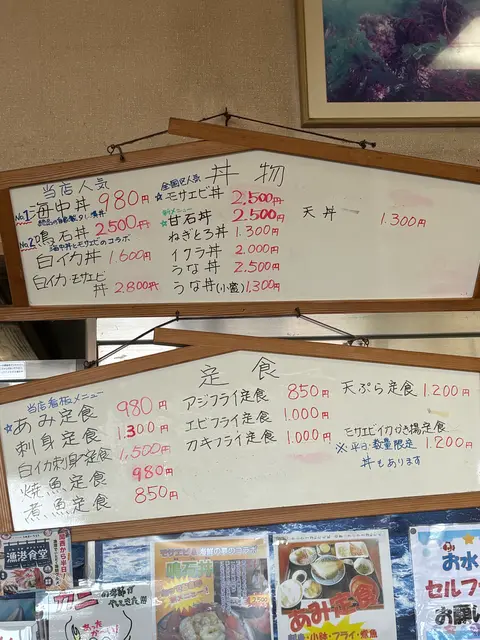 丼物
当店人気
No.1 海中丼 980円
No.2 鳴石丼 2500円
海中丼とモサエビのコラボ
白イカ丼 1,600円
白イカ・モサエビ丼 2,800円
全国区人気
☆モサエビ丼 2,500円
新メニュー
☆甘石丼 2,500円
ねぎとろ丼 1,300円
イクラ丼 2,000円
うな丼 2,500円
うな丼(小盛) 1,300円
天丼 1,300円
定食
当店看板メニュー
☆あみ定食 980円
刺身定食 1,300円
白イカ刺身定食 1,500円
焼魚定食 980円
煮魚定食 850円
アジフライ定食 850円
エビフライ定食 1,000円
カキフライ定食 1,000円
天ぷら定食 1,200円
モサエビイカかき揚定食
※平日・数量限定 1,200円
丼もあります
漁港食堂
関西から半日!
カニ
お季節が
やってきた!!
モサエビ&海鮮の夢のコラボ
鳴石丼
新メニュー!
あみ定食
刺身・小鉢・フライ・煮魚
お水
セルフ
お願い